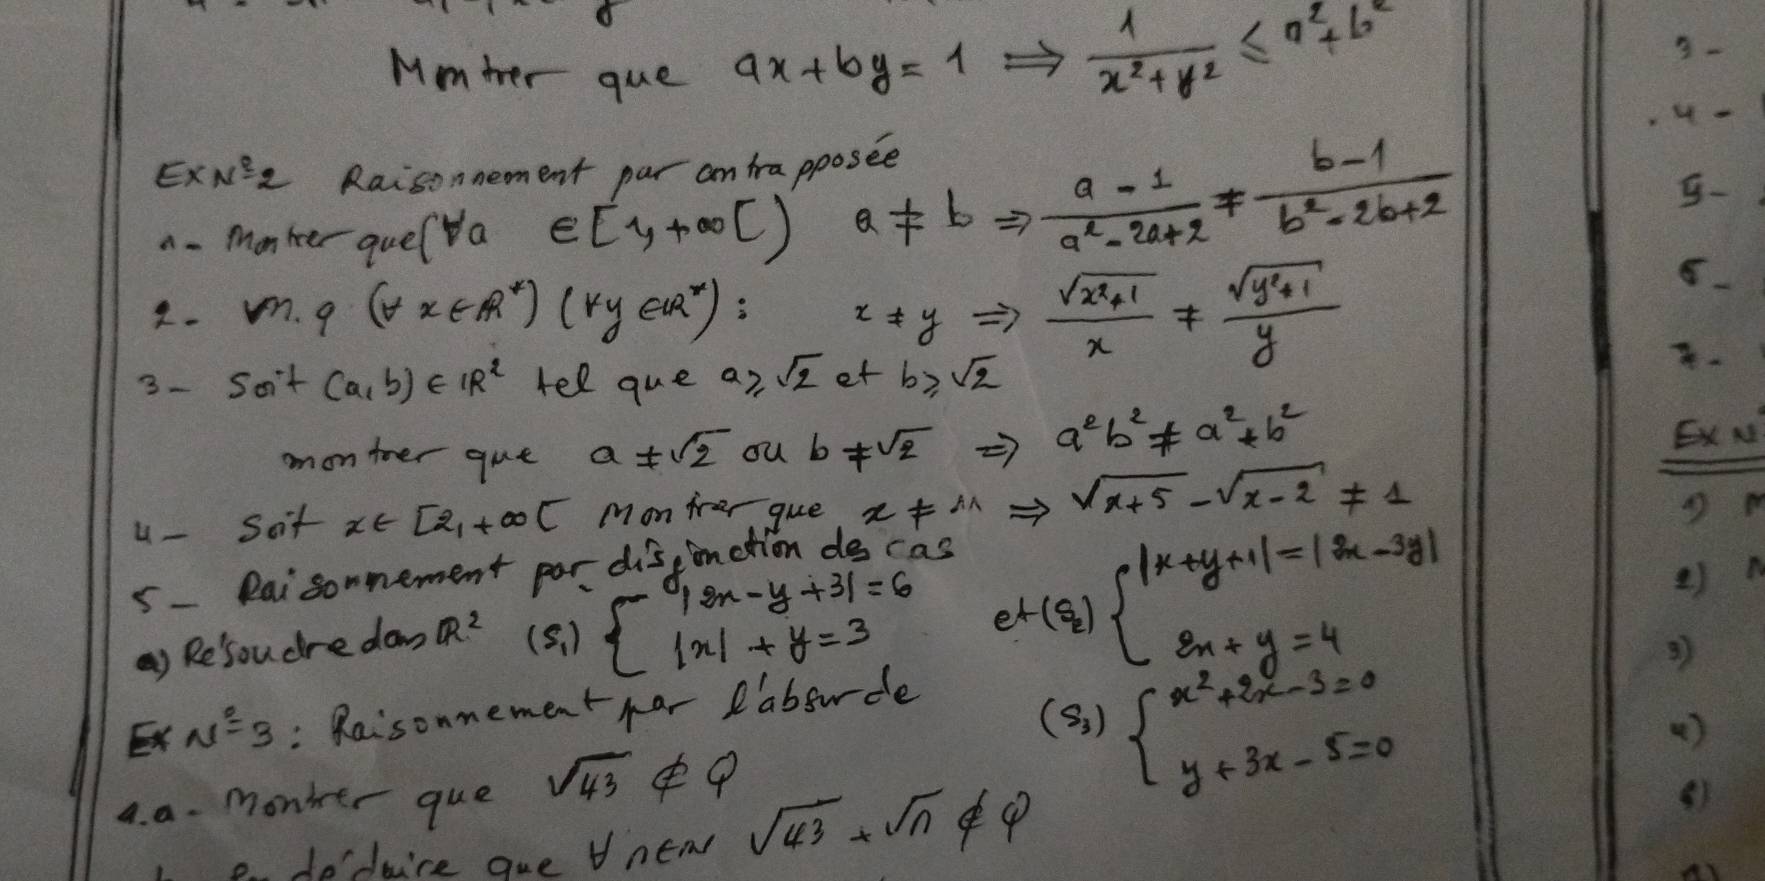 Montrer que ax+by=1 ⇒ 1/(x²+y²) ≤ a²+b²
Ex N°2 Raisonnement par contrapposée
1- Montrer que (∀a ∈[1,+∞[) a ≠ b ⇒ (a-1)/(a²-2a+2) ≠ (b-1)/(b²-2b+2)
2- m.q (∀x∈ℝ*) (∀y∈ℝ*) : x ≠ y ⇒ √(x²+1)/x ≠ √(y²+1)/y
3- Soit (a,b) ∈ ℝ² tel que a ≥ √2 et b ≥ √2
montrer que a ≠ √2 ou b ≠ √2 ⇒ a²b² ≠ a²+b²
4- Soit x∈ [2,+∞[ Montrer que x ≠ 11 ⇒ √(x+5) - √(x-2) ≠ 1
5- Raisonnement par disjonction des cas
a) Résoudre dans ℝ² (S₁) { |2x-y+3|=6 et (S₂) { |x+y+1|=|2x-3y|
|x|+y=3 2x+y=4
Ex N°3 : Raisonnement par l'absurde (S₃) { x²+2x-3=0
y+3x-5=0
1.a- Montrer que √43 ∉ Q
En déduire que ∀n∈ℕ √43 + √n ∉ Q
3-
4-
5-
6-
7-
Ex N°
1) M
2) M
3)
4)